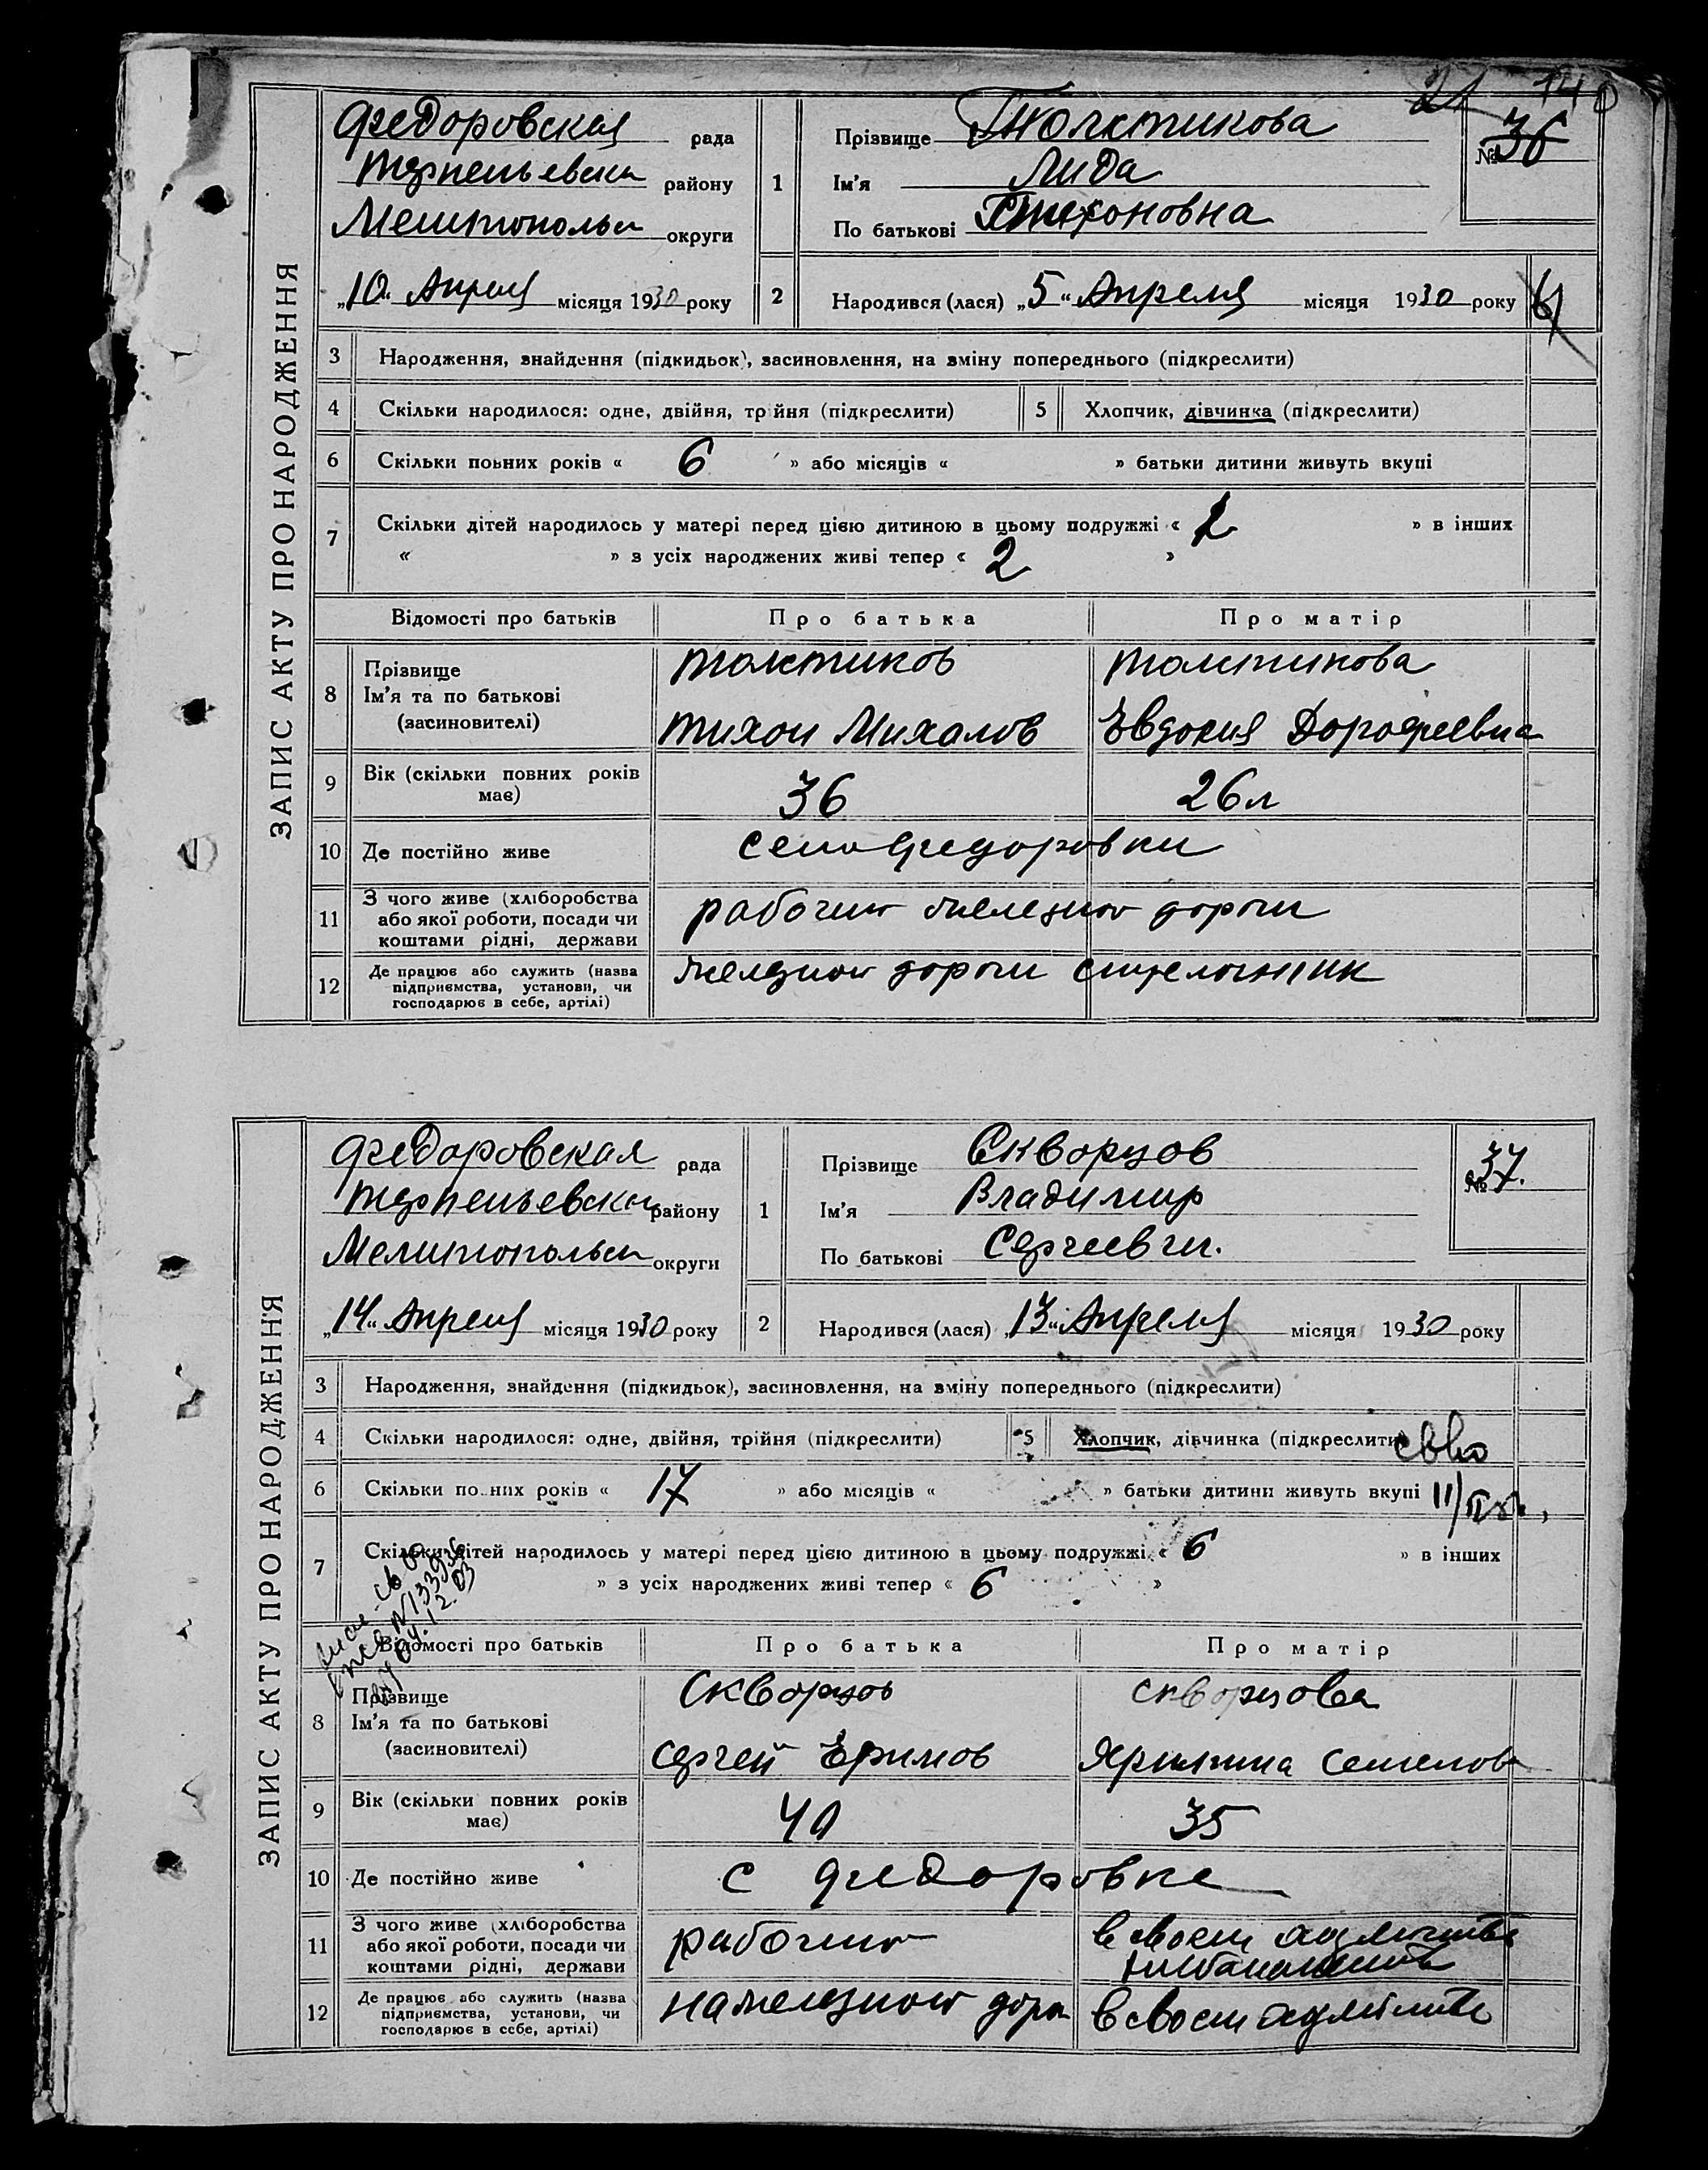 21 140
ЗАПИС АКТУ ПРО НАРОДЖЕННЯ
Федоровская рада
Терпеньевски району
Мелитопольск округи
„10“ Апреля місяця 1930 року
1 Прізвище Толстикова
Ім'я Лида
По батькові Тихоновна
№ 36
2 Народився (лася) „5“ Апреля місяця 1930 року
3 Народження, знайдення (підкидьок), засиновлення, на зміну попереднього (підкреслити)
4 Скільки народилося: одне, двійня, трійня (підкреслити) 5 Хлопчик, дівчинка (підкреслити)
6 Скільки повних років « 6 » або місяців « » батьки дитини живуть вкупі
7 Скільки дітей народилось у матері перед цією дитиною в цьому подружжі « 2 » в інших
« » з усіх народжених живі тепер « 2 »
Відомості про батьків Про батька Про матір
8 Прізвище
Ім'я та по батькові
(засиновителі)
Толстиков Толстикова
Тихон Михалов Евдокия Дорофеевна
9 Вік (скільки повних років
має) 36 26л
10 Де постійно живе село Федоровки
11 З чого живе (хліборобства
або якої роботи, посади чи
коштами рідні, держави
рабочий железной дороги
12 Де працює або служить (назва
підприємства, установи, чи
господарює в себе, артілі)
железной дороги стрелочник
ЗАПИС АКТУ ПРО НАРОДЖЕННЯ
Федоровская рада
Терпеньевски району
Мелитопольск округи
„14“ Апреля місяця 1930 року
1 Прізвище Скворцов
Ім'я Владимир
По батькові Сергеевич.
№ 37.
2 Народився (лася) „13“ Апреля місяця 1930 року
3 Народження, знайдення (підкидьок), засиновлення, на зміну попереднього (підкреслити)
4 Скільки народилося: одне, двійня, трійня (підкреслити) 5 Хлопчик, дівчинка (підкреслити)
6 Скільки повних років « 17 » або місяців « » батьки дитини живуть вкупі
7 Скільки дітей народилось у матері перед цією дитиною в цьому подружжі « 6 » в інших
» з усіх народжених живі тепер « 6 »
Відомості про батьків Про батька Про матір
8 Прізвище
Ім'я та по батькові
(засиновителі)
Скворцов скворцова
Сергей Ефимов Семенов
9 Вік (скільки повних років
має) 40 35
10 Де постійно живе с Федоровке
11 З чого живе (хліборобства
або якої роботи, посади чи
коштами рідні, держави
рабочий в своем
12 Де працює або служить (назва
підприємства, установи, чи
господарює в себе, артілі)
на железной доро в своем